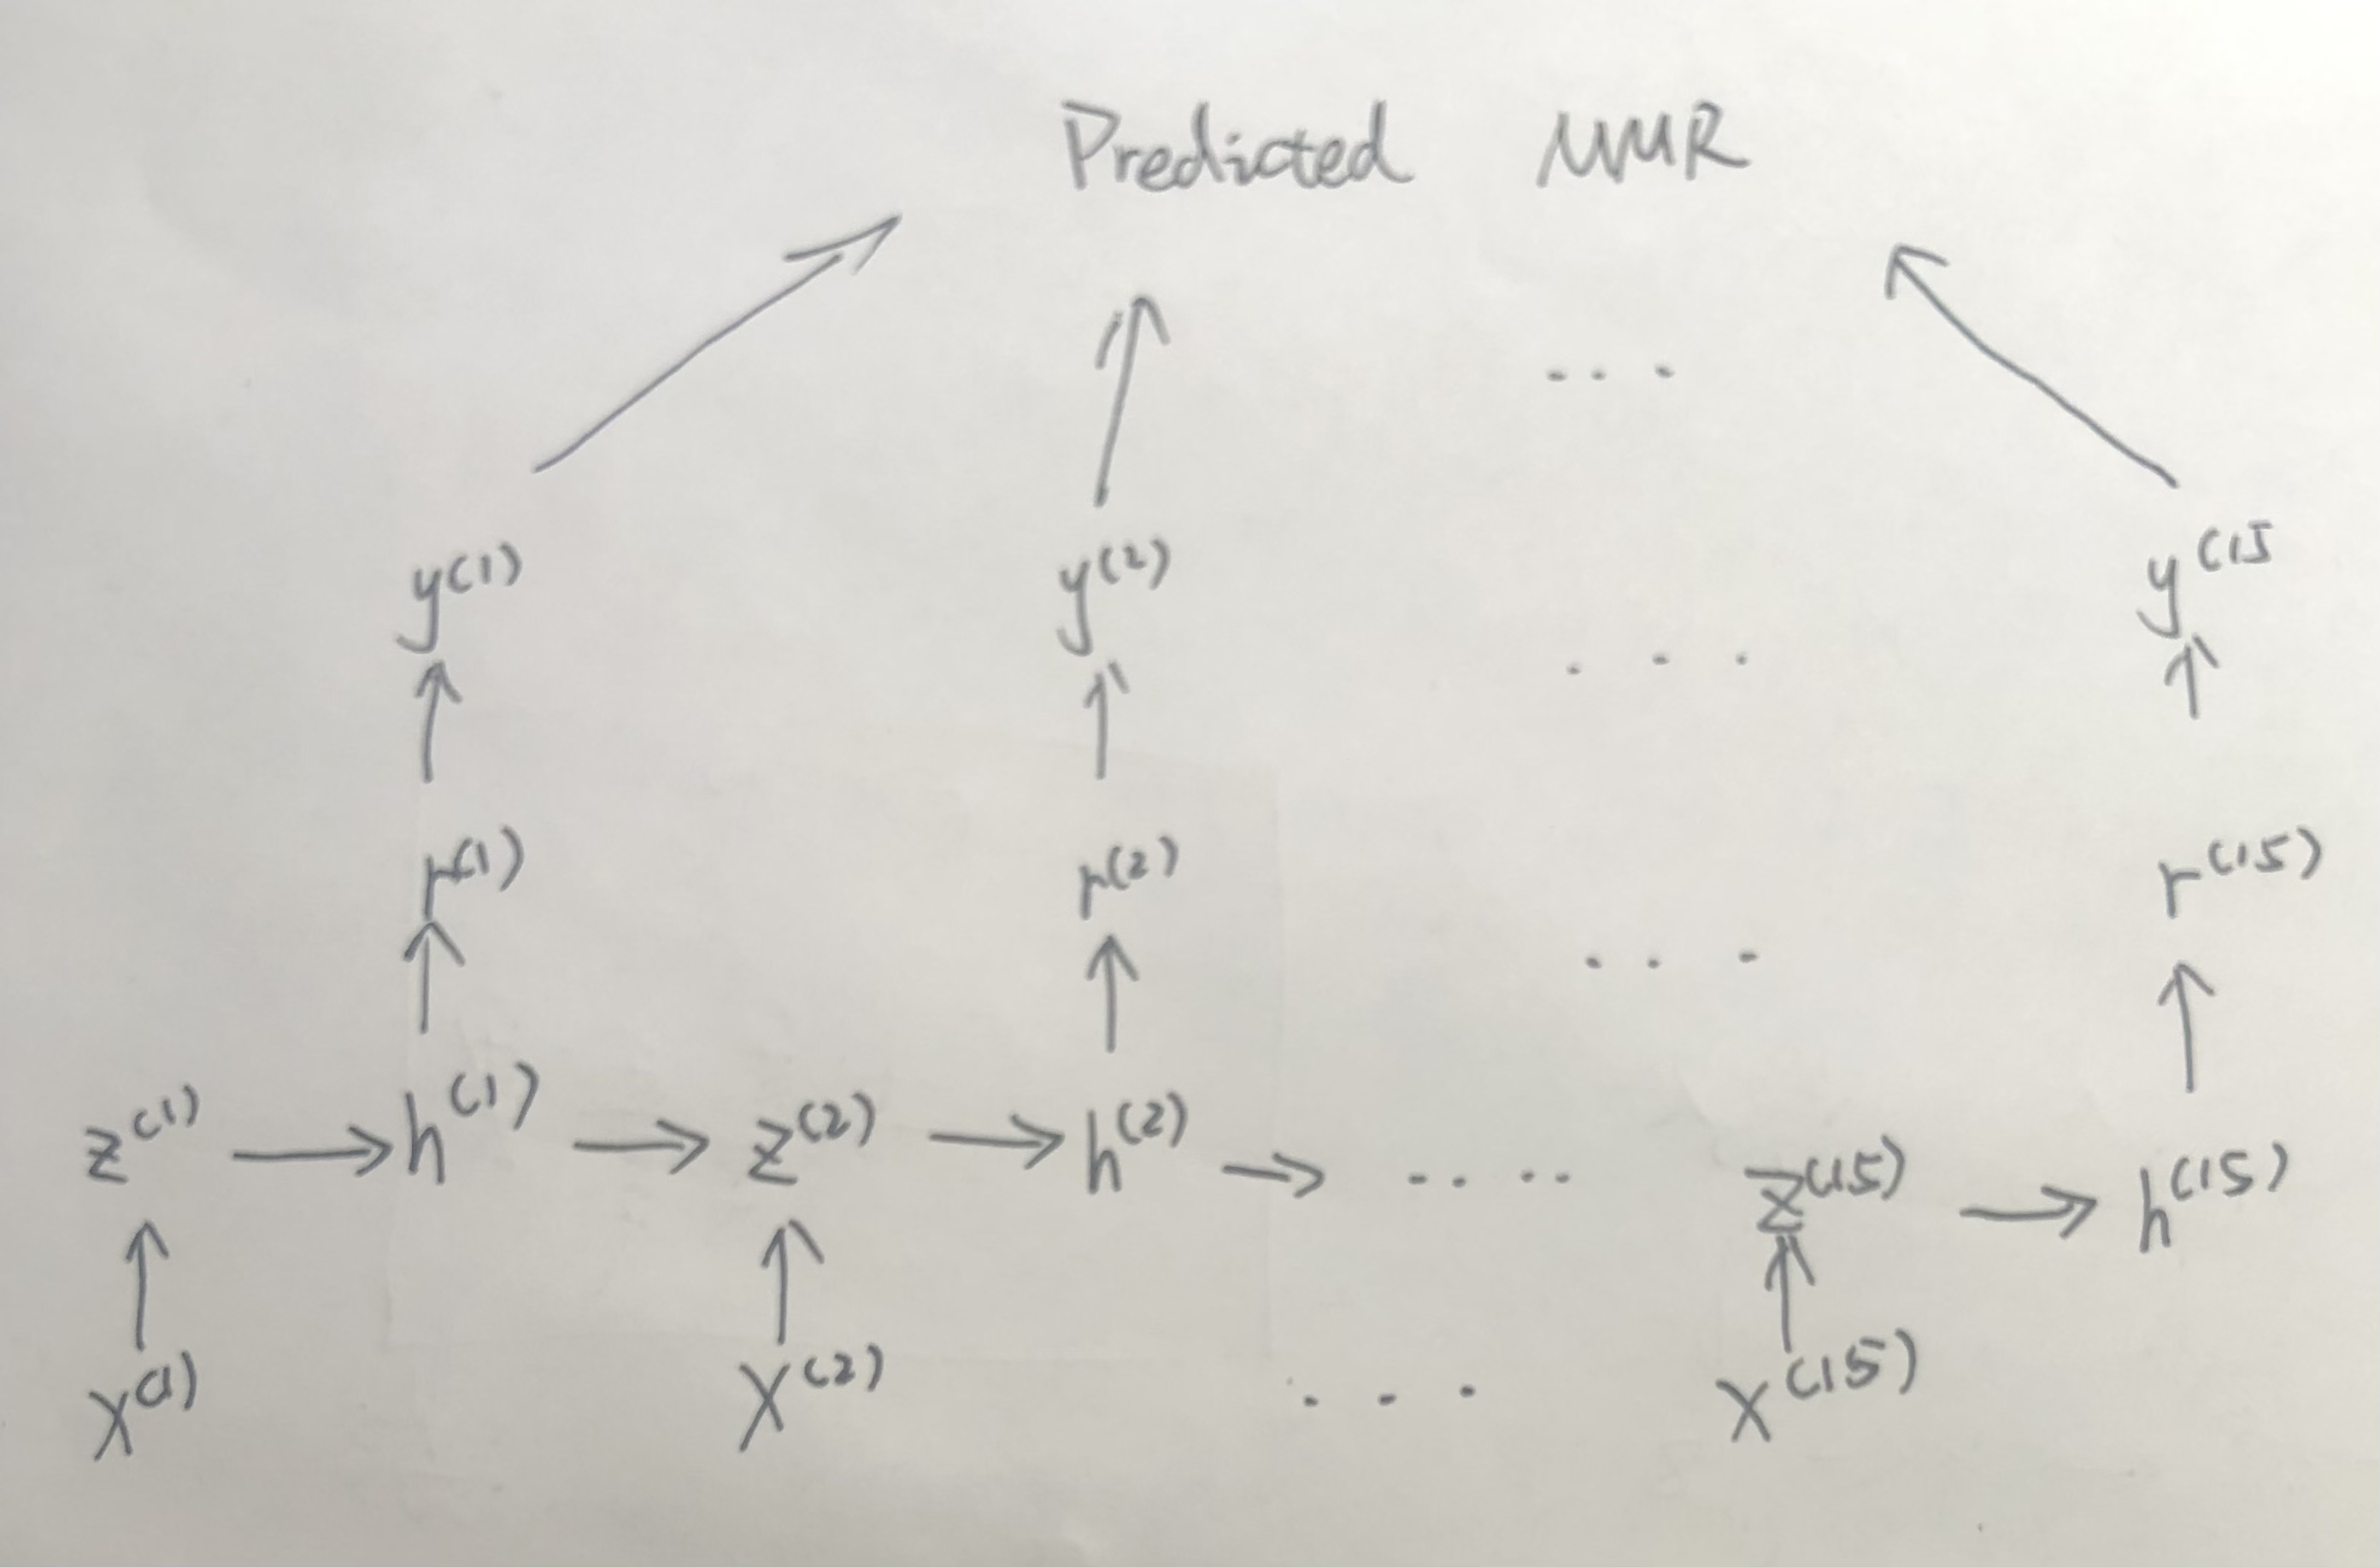 Predicted NMR
y(1) y(2) ... y(15
r(1) r(2) ... r(15)
z(1) → h(1) → z(2) → h(2) → ..... z(15) → h(15)
X(1) X(2) ... X(15)